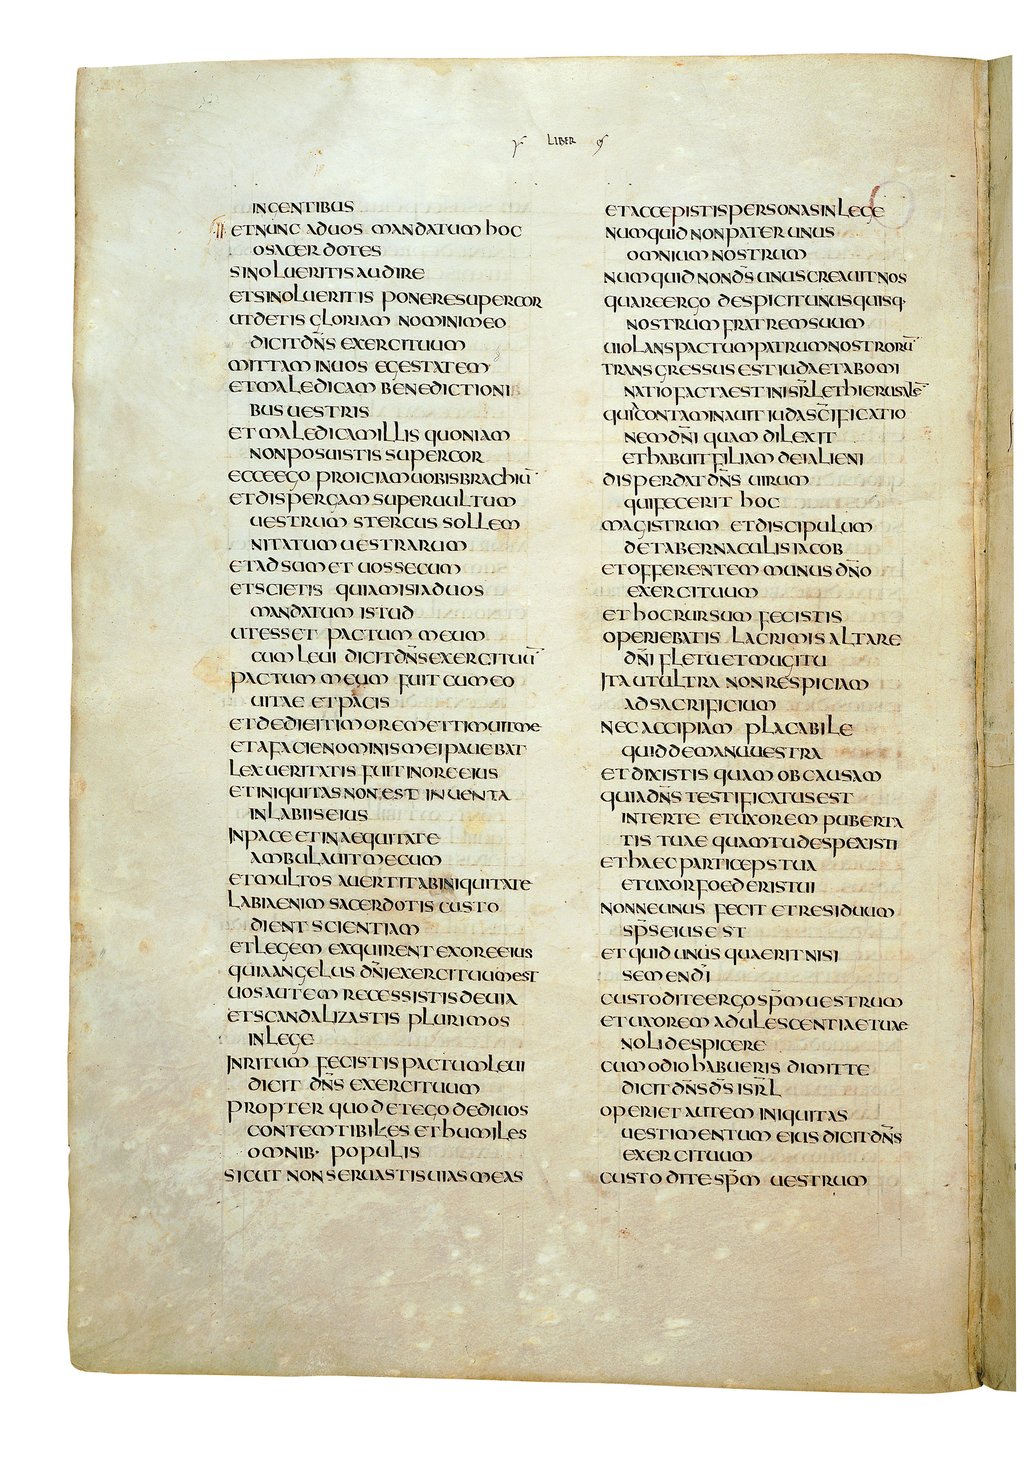 LIBER
INGENTIBUS
II ETNUNC ADUOS MANDATUM hOC
OSACERDOTES
SINOLUERITIS AUDIRE
ETSINOLUERITIS PONERESUPERCOR
UTDETIS GLORIAM NOMINIMEO
DICITDN̄S EXERCITUUM
MITTAM INUOS EGESTATEM
ETMALEDICAM BENEDICTIONI
BUSUESTRIS
ETMALEDICAMILLIS QUONIAM
NONPOSUISTIS SUPERCOR
ECCEEGO PROICIAMUOBISBRACHIŪ
ETDISPERGAM SUPERUULTUM
UESTRUM STERCUS SOLLEM
NITATUMUESTRARUM
ETADSUMET UOSSECUM
ETSCIETIS QUIAMISIADUOS
MANDATUM ISTUD
UTESSET PACTUM MEUM
CUM LEUI DICITDN̄SEXERCITUŪ
PACTUM MEUM FUIT CUMEO
UITAE ETPACIS
ETDEDIEITIMOREMETTIMUITME
ETAFACIENOMINISMEIPAUEBAT
LEXUERITATIS FUITINOREEIUS
ETINIQUITASNONEST INUENTA
INLABIISEIUS
INPACE ETINAEQUITATE
AMBULAUITMECUM
ETMULTOS AUERTITABINIQUITATE
LABIAENIM SACERDOTIS CUSTO
DIENT SCIENTIAM
ETLEGEM EXQUIRENT EXOREEIUS
QUIAANGELUS DN̄IEXERCITUUMEST
UOSAUTEM RECESSISTISDEUIA
ETSCANDALIZASTIS PLURIMOS
INLEGE
INRITUM FECISTIS PACTUMLEUI
DICIT DN̄S EXERCITUUM
PROPTER QUODETEGO DEDIUOS
CONTEMTIBILES EThUMILES
OMNIB· POPULIS
SICUT NONSERUASTISUIASMEAS
ETACCEPISTISPERSONASINLEGE
NUMQUID NONPATERUNUS
OMNIUMNOSTRUM
NUMQUID NOND̄SUNUSCREAUITNOS
QUAREERGO DESPICITUNUSQUISQ·
NOSTRUM FRATREMSUUM
UIOLANSPACTUMPATRUMNOSTRORŪ
TRANSGRESSUS ESTIUDAETABOMI
NATIOFACTAESTINISR̄LEThIERUSALĒ
QUICONTAMINAUIT IUDASC̄IFICATIO
NEMDN̄I QUAM DILEXIT
EThABUITFILIAM DEIALIENI
DISPERDATDN̄S UIRUM
QUIFECERIT hOC
MAGISTRUM ETDISCIPULUM
DETABERNACULISIACOB
ETOFFERENTEM MUNUSDN̄O
EXERCITUUM
EThOCRURSUM FECISTIS
OPERIEBATIS LACRIMISALTARE
DN̄I FLETUETMUGITU
ITAUTULTRA NONRESPICIAM
ADSACRIFICIUM
NECACCIPIAM PLACABILE
QUIDDEMANUUESTRA
ETDIXISTIS QUAM OBCAUSAM
QUIADN̄S TESTIFICATUSEST
INTERTE ETUXOREM PUBERTA
TIS TUAE QUAMTUDESPEXISTI
EThAEC PARTICEPSTUA
ETUXORFOEDERISTUI
NONNEUNUS FECIT ETRESIDUUM
SP̄SEIUSEST
ETQUIDUNUS QUAERITNISI
SEMENDĪ
CUSTODITEERGOSP̄MUESTRUM
ETUXOREM ADULESCENTIAETUAE
NOLIDESPICERE
CUM ODIO hABUERIS DIMITTE
DICITDN̄SD̄S ISR̄L
OPERIETAUTEM INIQUITAS
UESTIMENTUM EIUS DICITDN̄S
EXERCITUUM
CUSTODITESP̄M UESTRUM